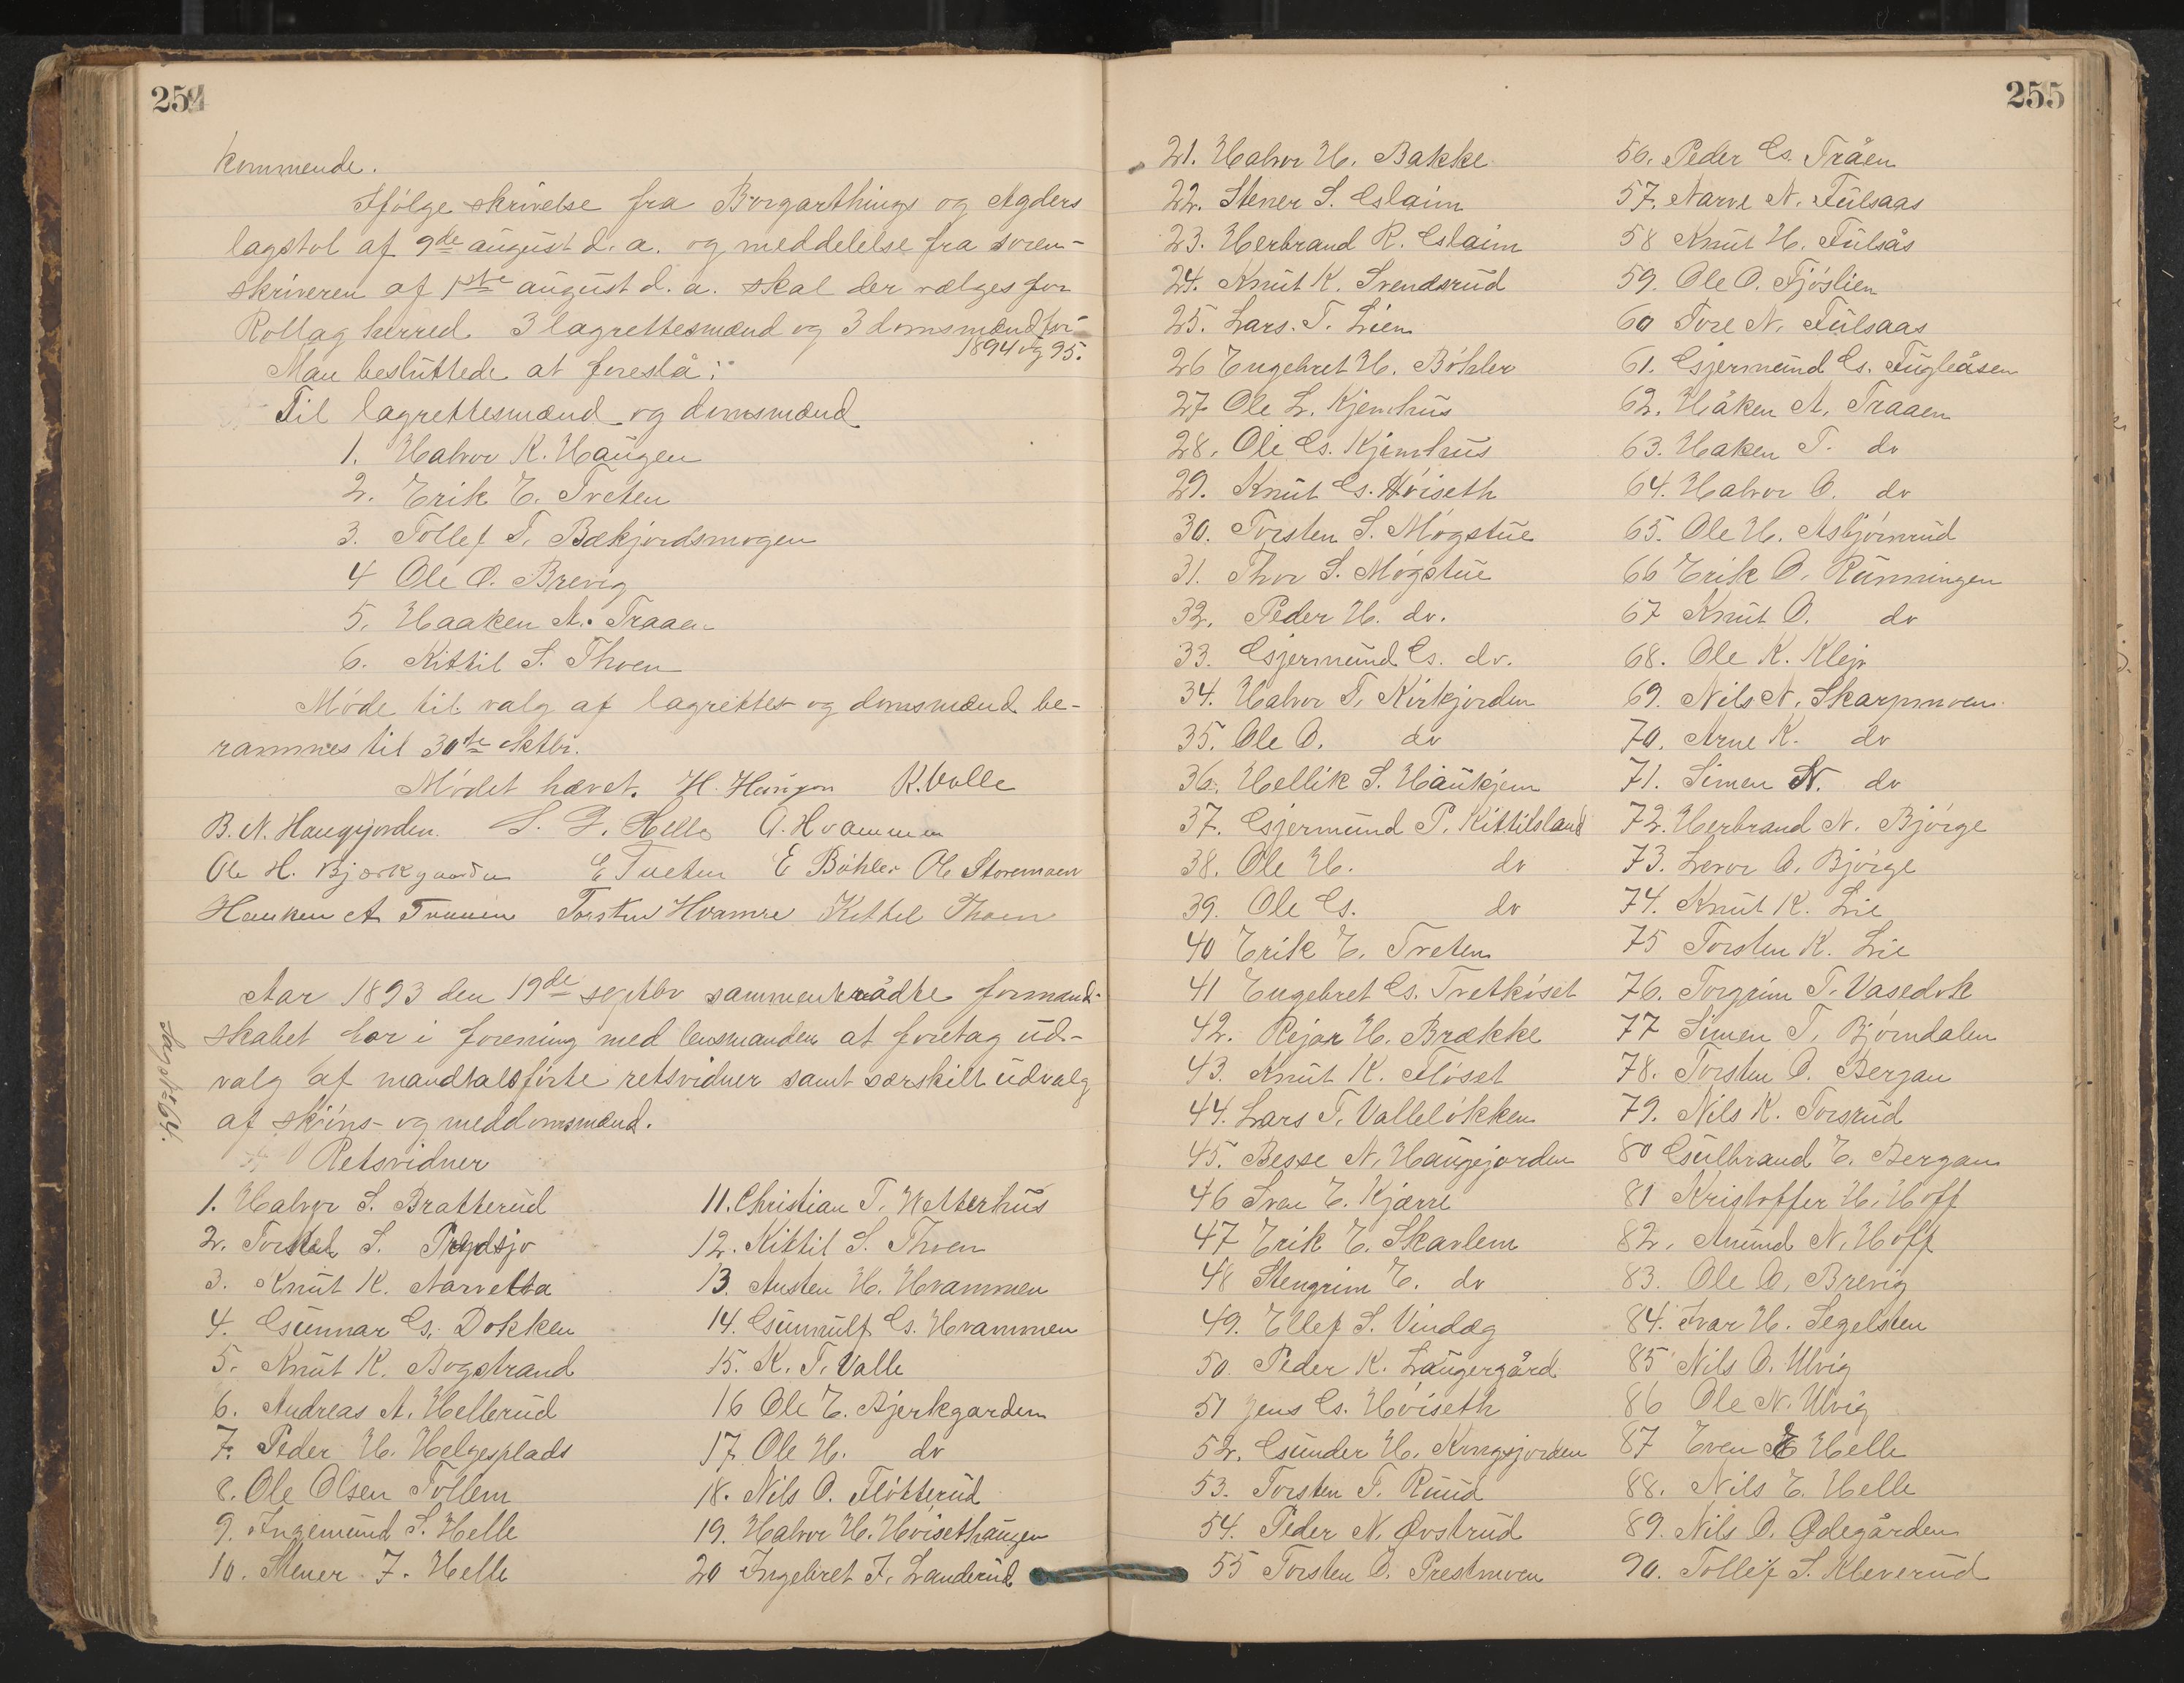 254
kommende.
Ifölge skrivelse fra Borgarthings og Agders
lagstol af 9de august d. a. og meddelelse fra soren-
skriveren af 1ste august d. a. skal der vælges for
Rollag herred 3 lagrettesmænd og 3 domsmænd for
1894 og 95.
Man besluttede at foreslå:
Til lagrettesmænd og domsmænd
1. Halvor K. Haugen
2. Erik E. Tveten
3. Tollef T. Bækjordsmogen
4 Ole O. Brevig
5. Haaken A. Traaen
6. Kittil S. Thoen
Möde til valg af lagrettes og domsmænd be-
rammes til 30te oktbr.
Mödet hævet. H. Haugen K. Valle
B. N. Haugejorden. S. Helle A. Hvammen
Ole H. Bjerkgaarden E Tveten E Böhler Ole Storemoen
Haaken A Traaen Torsten Hvamre Kittil Thoen
Aar 1893 den 19de septbr sammentrådte formand-
skabet for i forening med lensmanden at foretag ud-
valg af mandtalsförte retsvidner samt særskilt udvalg
af sköns- og meddomsmænd.
Retsvidner
1. Halvor S. Bratterud
2. Torkel S.
3. Knut K. Narvetta
4. Gunnar G. Dokken
5. Knut K. Bogstrand
6. Andreas A. Hellerud
7. Peder H. Helgesplads
8. Ole Olsen Tollem
9. Ingemund S. Helle
10. Stener J. Helle
11. Christian T. Wetterhus
12. Kittil S. Thoen
13 Austen H. Hvammen
14. Gunnulf G. Hvammen
15. K. T. Valle
16 Ole E. Bjerkgarden
17 Ole H. do
18. Nils O. Flötterud
19. Halvor H. Hvisethaugen
20 Ingebret J. Landerud
255
21. Halvor H. Bakke
22. Stener S. Eslaim
23. Herbrand R. Eslaim
24. Knut K. Svendsrud
25. Lars. T. Lien
26 Engebret H. Böhler
27 Ole L. Kjemhus
28. Ole G. Kjemhus
29. Knut G. Höiseth
30. Torsten S. Mögstue
31. Thor S. Mögstue
32. Peder H. do.
33. Gjermund G. do.
34. Halvor T. Kirkjorden
35. Ole O. do
36. Hellik S. Haukjem
37. Gjermund P. Kittilsland
38. Ole H. do
39. Ole G. do
40 Erik E. Tveten
41 Engebret G. Tvetköset
42. Rejar H. Brække
43. Knut K. Flöset
44. Lars T. Vallelökken
45. Besse N. Haugejorden
46 Sven E. Kjærre
47 Erik E. Skavlem
48 Stengrim E. do
49. Ellef S. Vindeg
50. Peder K. Laugergård
51 Jens G. Höiseth
52. Gunder H. Kongsjorden
53. Torsten T. Ruud
54. Peder N. Qvstrud
55 Torsten O. Prestmoen
56. Peder G. Tråen
57. Narve N. Fulsaas
58 Knut H. Fulsås
59. Ole O. Fjöslien
60 Tore N. Fulsaas
61. Gjermund G. Fugleåsen
62. Håken A. Traaen
63. Haken T. do
64. Halvor O. do
65. Ole H. Asbjörnrud
66 Erik O. Runningen
67 Knut O. do
68. Ole K. Klejv
69. Nils N. Skarpmoen
70. Arne K. do
71. Simen N. do
72. Herbrand N. Björge
73. Levor O. Björge
74. Knut K. Lie
75 Torsten K. Lie
76. Torgrim T. Vasedok
77 Simen T. Björndalen
78. Torsten O. Bergan
79. Nils K. Torsrud
80 Gulbrand E. Bergan
81 Kristoffer H. Hoff
82. Amund N. Hoff
83. Ole O. Brevig
84. Ivar H. Segelsten
85 Nils O. Ulvig
86 Ole N. Ulvig
87 Even E Helle
88. Nils E. Helle
89. Nils O. Ødegården
90. Tollef S. Kleverud